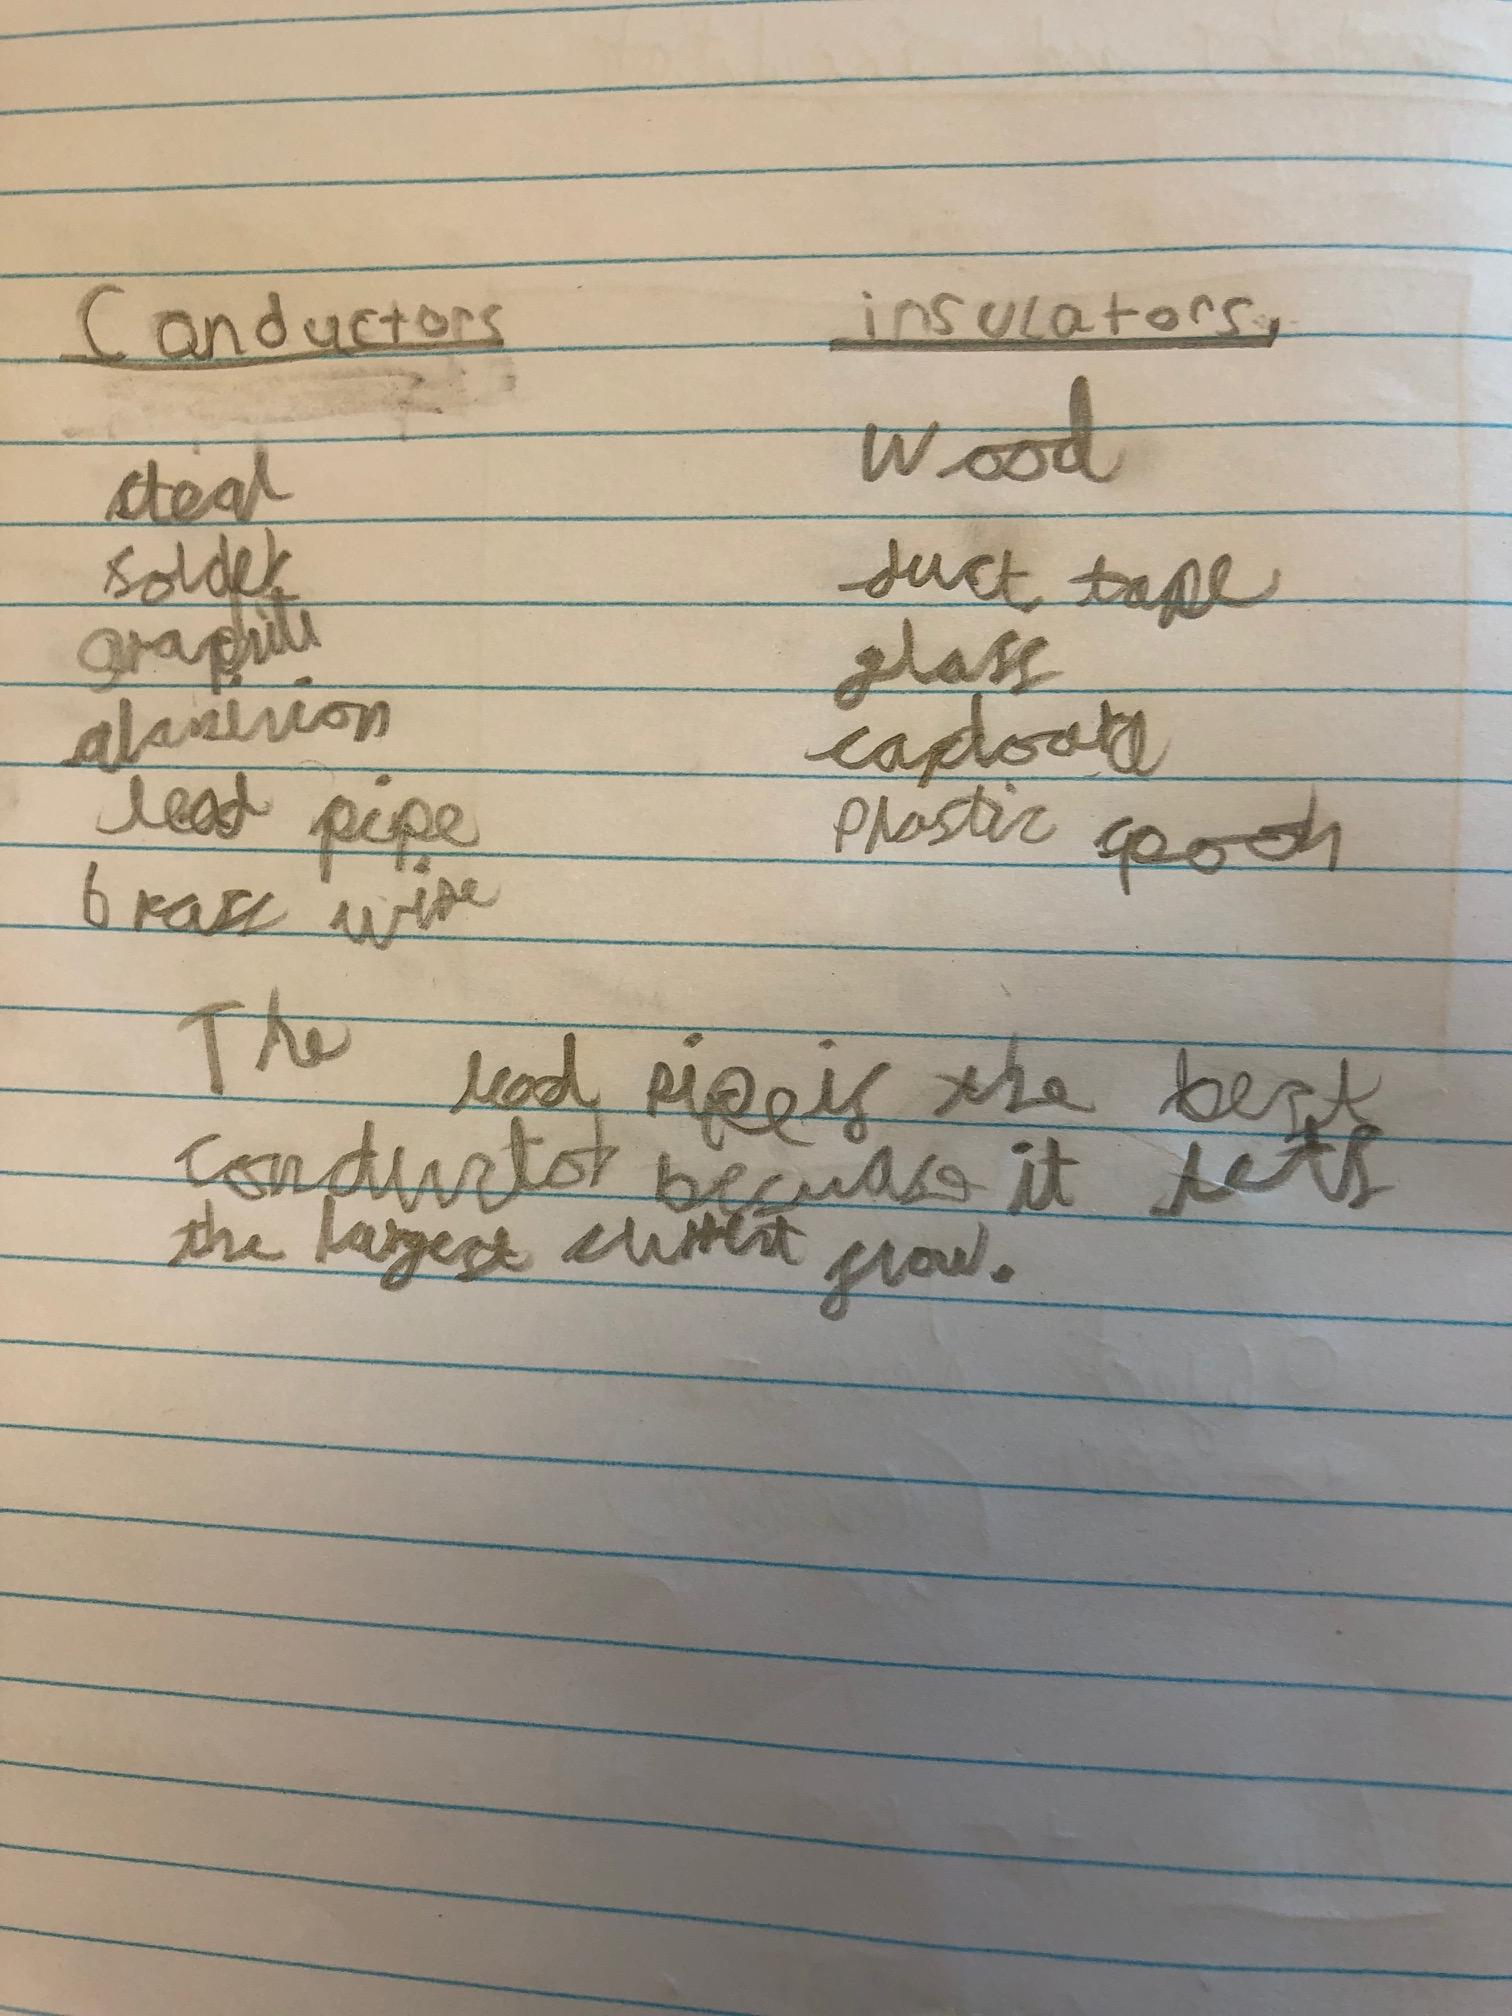 Conductors insulators,
steal wood
solder duct tape
graphite glass
plastic spoon
lead pipe
brass wire
The lead pipe is the best
conductor because it lets
the largest current flow.